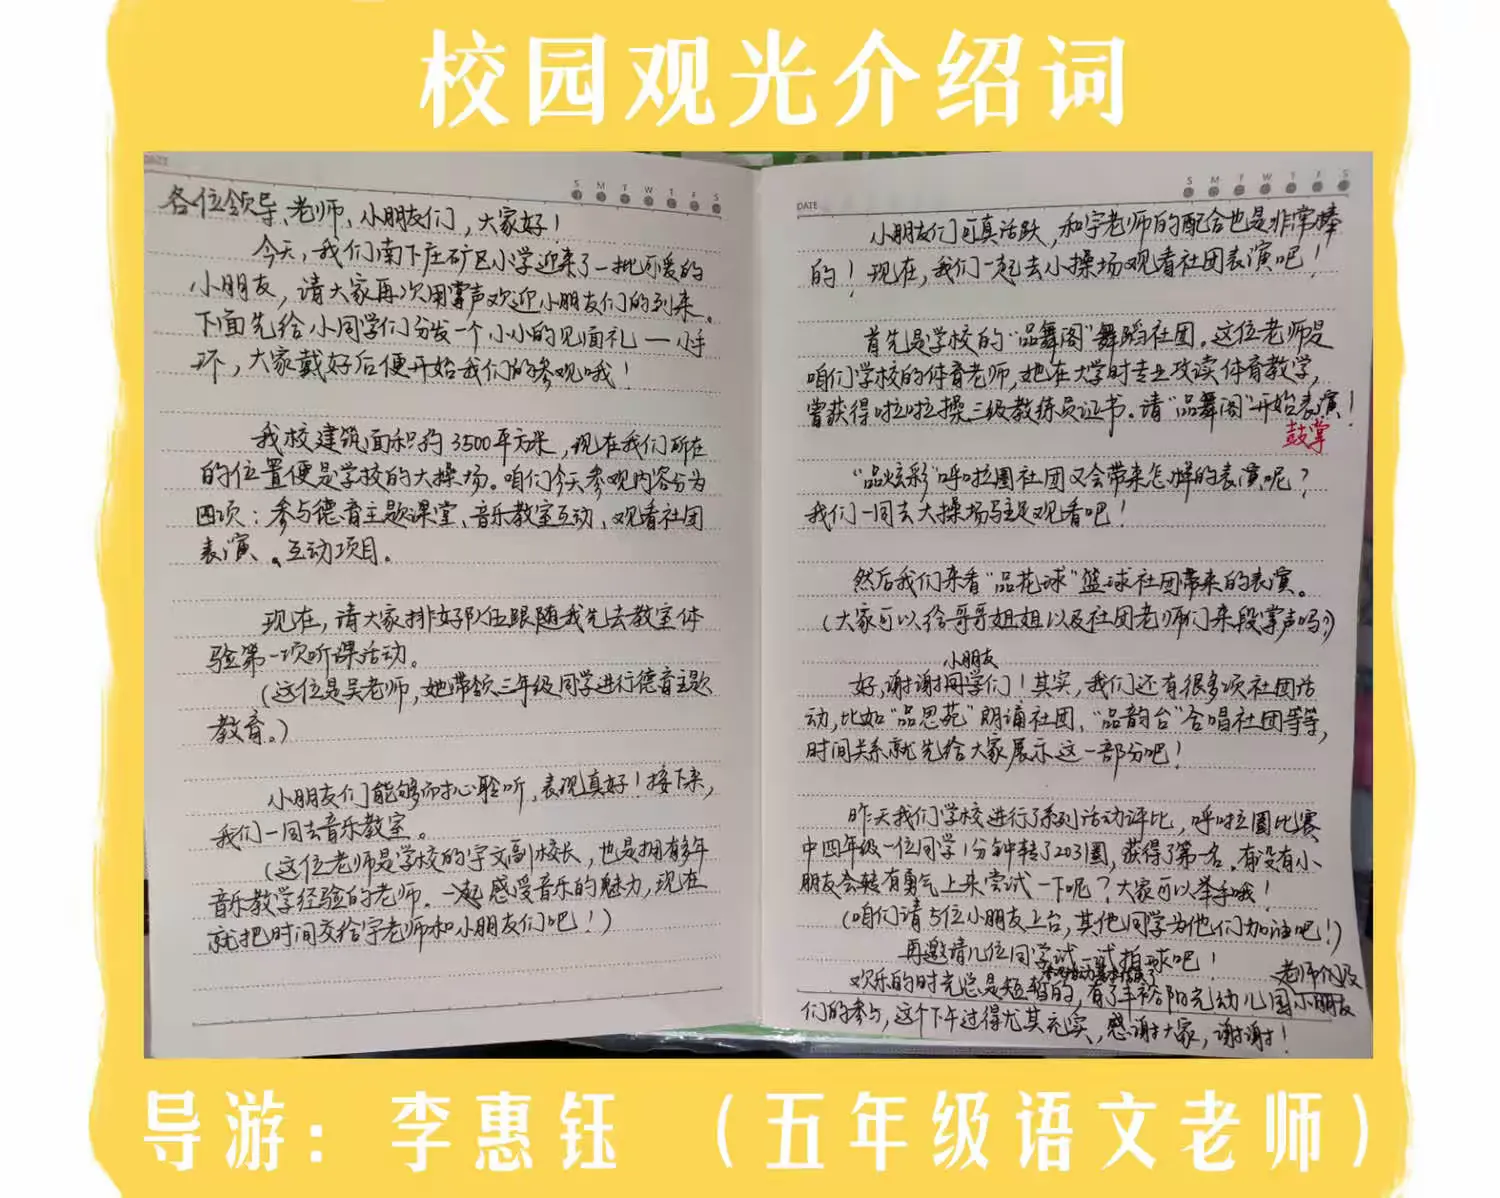 校园观光介绍词
DATE
S M T W T F S
各位领导、老师、小朋友们,大家好!
今天,我们南下庄矿区小学迎来了一批可爱的
小朋友,请大家再次用掌声欢迎小朋友们的到来。
下面先给小同学们分发一个小小的见面礼——小手
环,大家戴好后便开始我们的参观哦!
我校建筑面积约3500平方米,现在我们所在
的位置便是学校的大操场。咱们今天参观内容分为
四项:参与德育主题课堂、音乐教室互动、观看社团
表演、互动项目。
现在,请大家排好队伍跟随我先去教室体
验第一项听课活动。
(这位是吴老师,她带领三年级同学进行德育主题
教育。)
小朋友们能够用心聆听,表现真好!接下来,
我们一同去音乐教室。
(这位老师是学校的宇文副校长,也是拥有多年
音乐教学经验的老师。一起感受音乐的魅力,现在
就把时间交给宇老师和小朋友们吧!)
DATE
S M T W T F S
小朋友们可真活跃,和宇老师的配合也是非常棒
的!现在,我们一起去小操场观看社团表演吧!
首先是学校的“品舞阁”舞蹈社团。这位老师是
咱们学校的体育老师,她在大学时专业攻读体育教学,
曾获得啦啦操三级教练员证书。请“品舞阁”开始表演!
鼓掌
“品炫彩”呼啦圈社团又会带来怎样的表演呢?
我们一同去大操场驻足观看吧!
然后我们来看“品花球”篮球社团带来的表演。
(大家可以给哥哥姐姐以及社团老师们来段掌声吗?)
小朋友
好,谢谢同学们!其实,我们还有很多项社团活
动,比如“品思苑”朗诵社团、“品韵台”合唱社团等等,
时间关系就先给大家展示这一部分吧!
昨天我们学校进行了系列活动评比,呼啦圈比赛
中四年级一位同学1分钟转了203圈,获得了第一名。有没有小
朋友会转有勇气上来尝试一下呢?大家可以举手哦!
(咱们请5位小朋友上台,其他同学为他们加油吧!)
再邀请几位同学试一试拍球吧!
老师们及
欢乐的时光总是短暂的,有了丰裕阳光幼儿园小朋友
们的参与,这个下午过得尤其充实,感谢大家,谢谢!
导游:李惠钰(五年级语文老师)